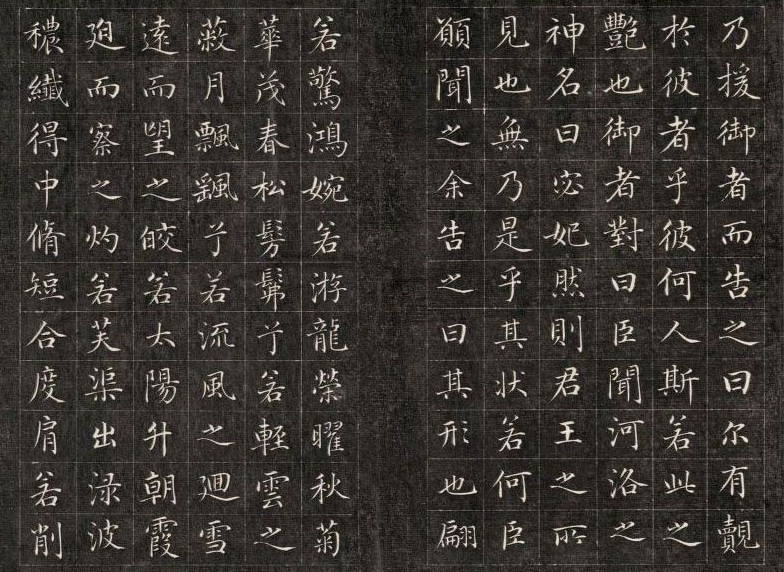 乃援御者而告之曰尔有覿
於彼者乎彼何人斯若此之
豔也御者對曰臣聞河洛之
神名曰宓妃然則君王之所
見也無乃是乎其状若何臣
願聞之余告之曰其形也翩
若驚鴻婉若游龍榮曜秋菊
華茂春松髣髴兮若輕雲之
蔽月飄颻兮若流風之廻雪
遠而望之皎若太陽升朝霞
廹而察之灼若芙渠出淥波
穠纖得中脩短合度肩若削